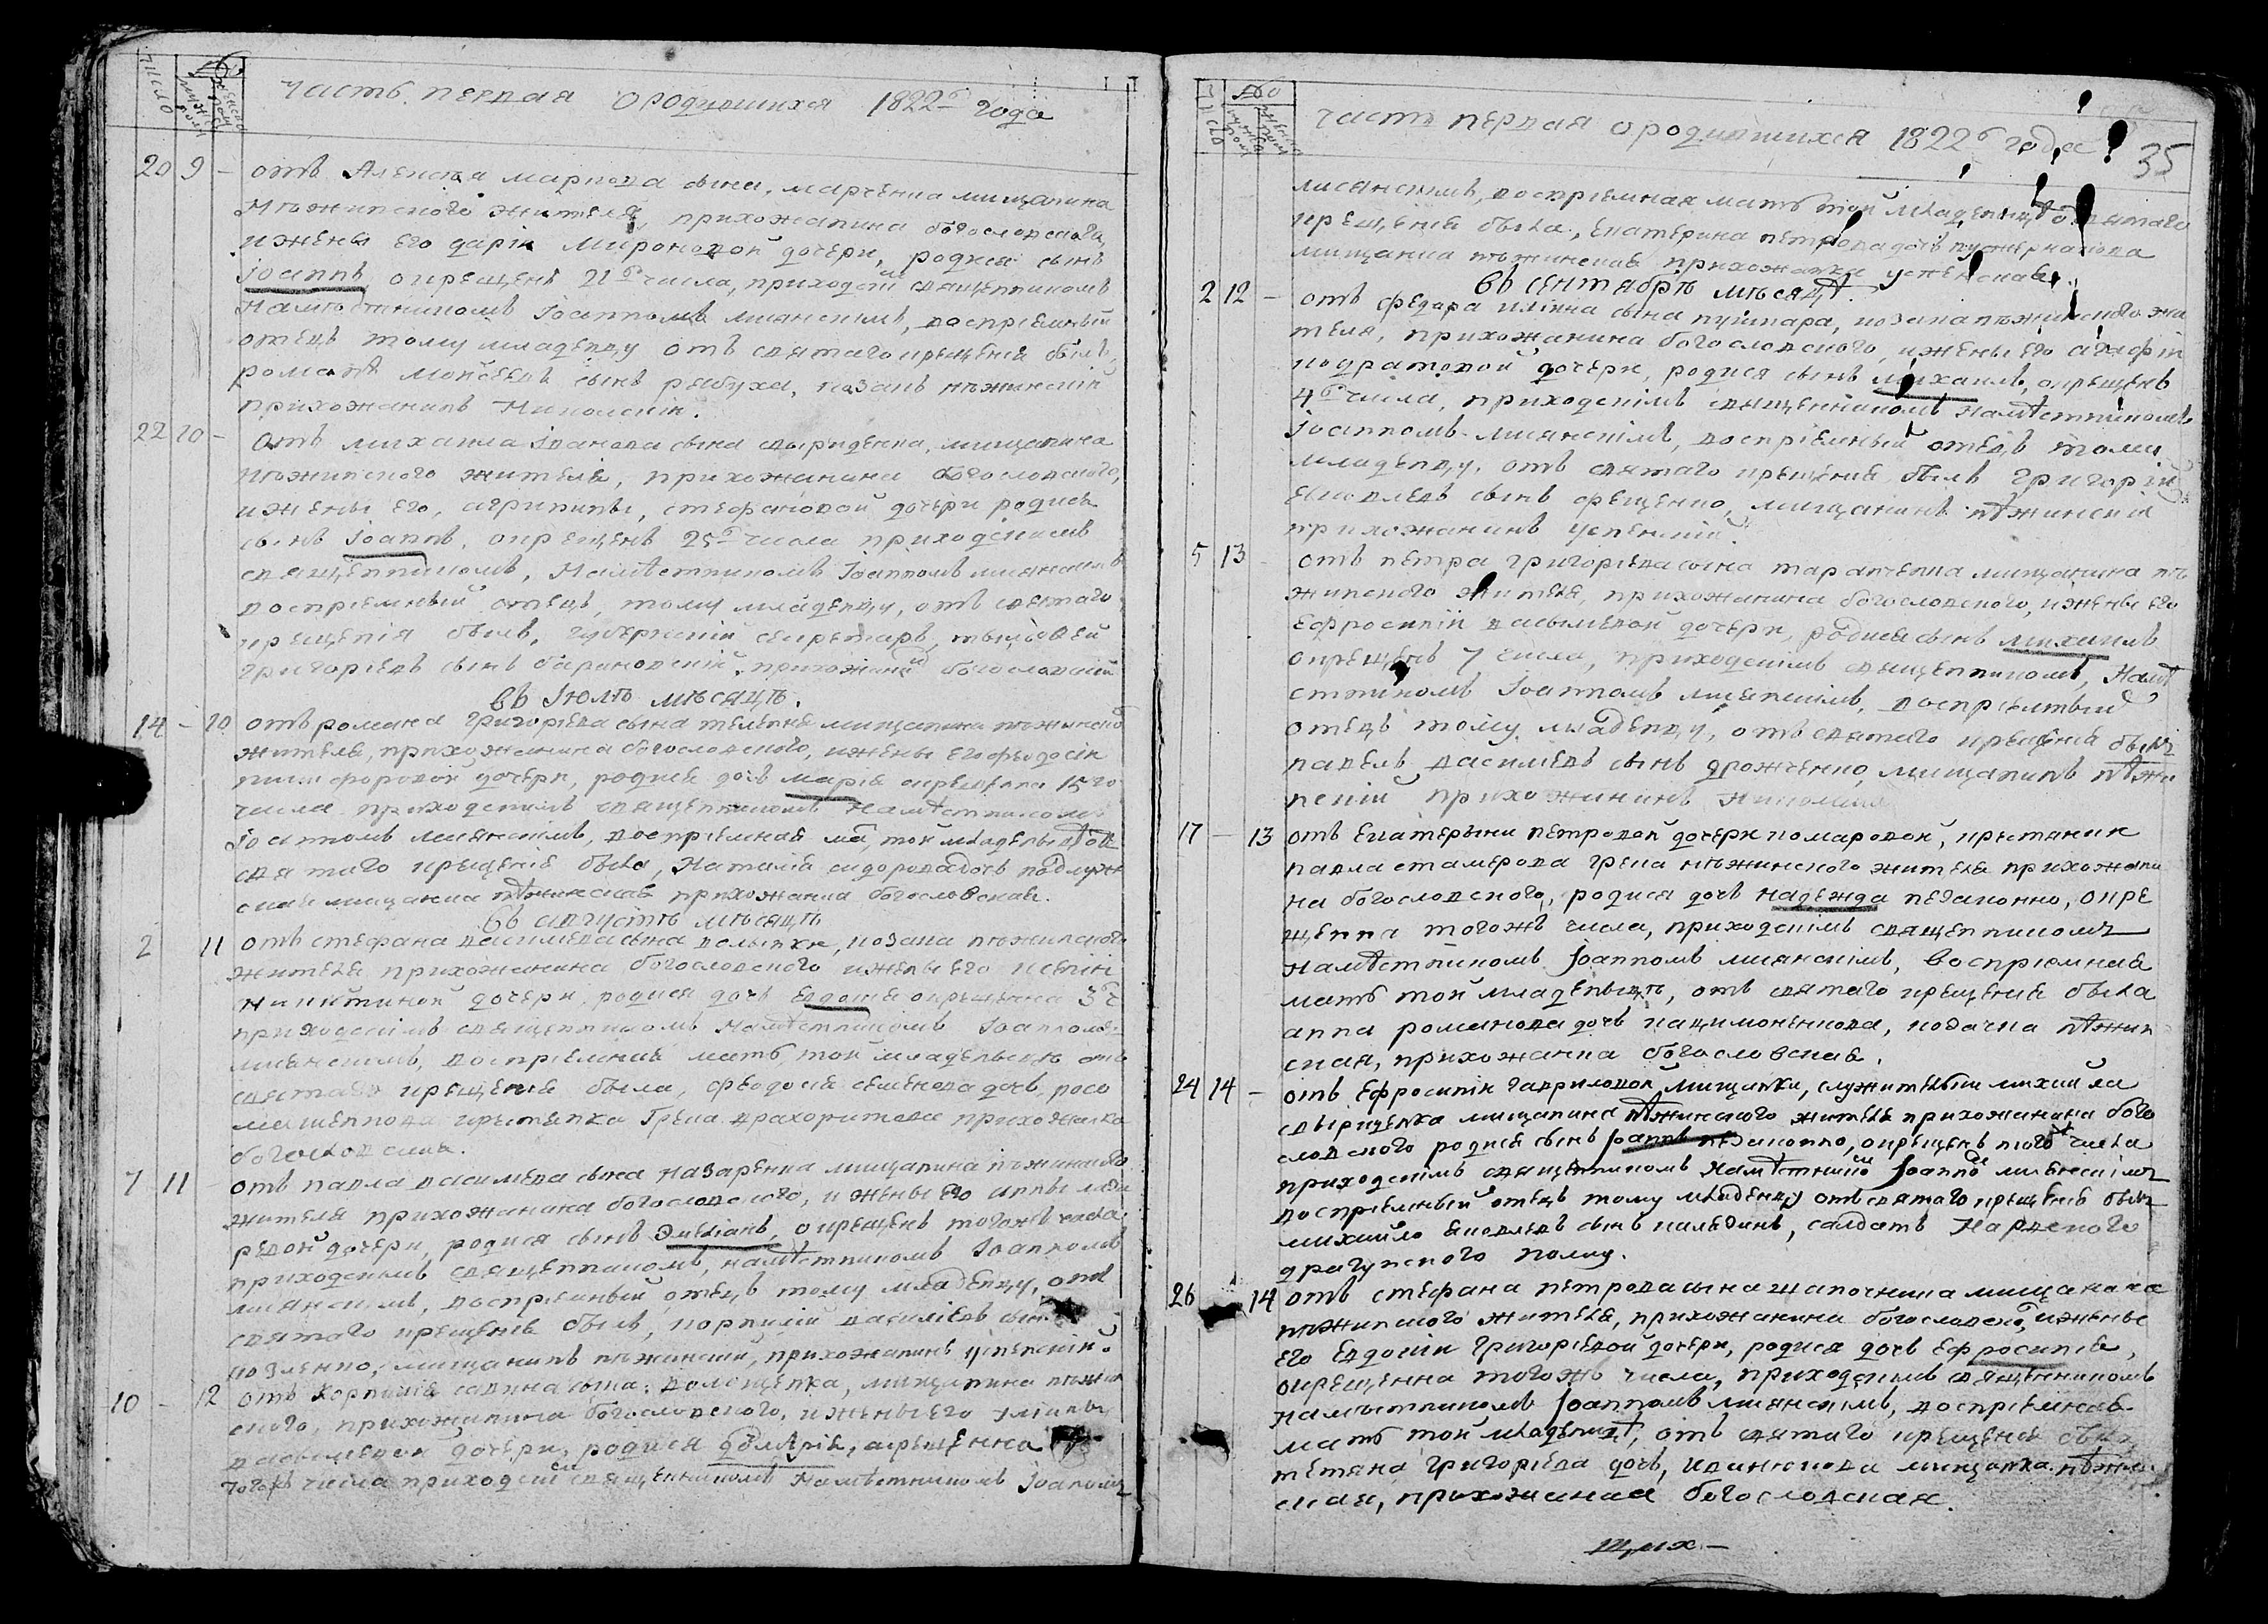 число
№
мужеска полу
женска полу
часть первая о родившихся 1822го года
20 9 – отъ Алексея маркова сына, марченка мищанина
Нѣжинского жителя, прихожанина богословского,
и жены его дарїи мироновой дочери, родися сынъ
Іоаннъ, окрещенъ 21го числа, приходскимъ священникомъ
Намѣстникомъ Іоанномъ лисянскимъ, воспрїемный
отецъ тому младенцу отъ святаго крещенїя былъ,
романъ мойсеевъ сынъ рябуха, козакъ нѣжинскїй
прихожанинъ Николскїй.
22 10 – отъ михаила Іванова сына свириденка, мищанина
нѣжинского жителя, прихожанина богословского,
и жены его, агрипины, стефановой дочери родися
сынъ Іоаннъ, окрещенъ 25го числа приходскимъ
священникомъ, Намѣстникомъ Іоанномъ лисянскимъ
воспрїемный отецъ, тому младенцу, отъ святаго
крещенїя былъ, губернскїй секретарь,
григорїевъ сынъ барановскїй, прихожанинъ богословскїй
въ Іюлѣ мѣсяцѣ.
14 – 10 отъ романа григорїева сына телепня мищанина нѣжинско
жителя, прихожанина богословского, и жены его феодосїи
никифоровой дочери, родися дочь марїя окрещенна 15го
числа приходскимъ священникомъ Намѣстникомъ
Іоанномъ лисянскимъ, воспрїемная ма, той младеницѣ отъ
святаго крещенїя была, Наталїя сидорова дочь
ская мищанка нѣжинская прихожанка богословская.
въ августѣ мѣсяцѣ
2 11 отъ стефана василїева сына, козака нѣжинского
жителя прихожанина богословского и жены его ксенїи
никитиной дочери, родися дочь евдокїя окрещенна 3го ч
приходскимъ священникомъ намѣстникомъ Іоанномъ
лисянскимъ, воспрїемная мать, той младеницѣ отъ
святаго крещенїя была, феодосїя семенова дочь,
крестянка грека прихожанка
богословская.
7 11 отъ павла василїева сына Назаренка мищанина нѣжинского
жителя прихожанина богословского, и жены его анны лаза
ревой дочери, родися сынъ Эмилїанъ, окрещенъ тогожъ числа
приходскимъ священникомъ, намѣстникомъ Іоанномъ
лисянскимъ, воспрїемный отецъ тому младенцу, отъ
святаго крещенїя былъ, корнилїй василїевъ сынъ
козленко, мищанинъ нѣжинскїй, прихожанинъ успенскїй.
10 – 12 отъ Корнилїя савина сына, мищанина нѣжин
ского, прихожанина богословского, и жены его улїяны
василїевой дочери, родися дочь марїя, окрещенна
тогожъ числа приходскимъ священникомъ Намѣстникомъ Іоанномъ
число
№
мужеска полу
женска полу
часть первая о родившихся 1822го года
35
лисянскимъ, воспрїемная мать той младеницѣ отъ святаго
крещенїя была, екатерина петрова дочь
мищанка нѣжинская прихожанка успенская.
въ сентябрѣ мѣсяцѣ.
2 12 – отъ федора илїина сына пушкара, козака нѣжинского жи
теля, прихожанина богословского, и жены его агафїи
кодратовой дочери, родися сынъ михаилъ, окрещенъ
4го числа, приходскимъ священникомъ намѣстникомъ
Іоанномъ лисянскимъ, воспрїемный отецъ тому
младенцу, отъ святаго крещенїя былъ григорїй
яковлевъ сынъ фещенко, мищанинъ нѣжинскїй
прихожанинъ успенскїй.
5 13 отъ петра григорїева сына таранченка мищанина нѣ
жинского жителя, прихожанина богословского, и жены его
ефросинїи василїевой дочери, родися сынъ михаилъ
окрещенъ 7 числа, приходскимъ священникомъ, Намѣ
стникомъ Іоанномъ лисянскимъ, воспрїемный
отецъ тому младенцу, отъ святаго крещенїя былъ
павелъ василїевъ сынъ дрожченко, мищанинъ нѣжи
нскїй прихожанинъ николскїй
17 – 13 отъ екатерины петровой дочери комаровой, крестянки
павла стамерова грека нѣжинского жителя прихожани
на богословского, родися дочь надежда незаконно, окре
щенна тогожъ числа, приходскимъ священникомъ
намѣстникомъ Іоанномъ лисянскимъ, воспрїемная
мать той младеницѣ, отъ святаго крещенїя была
анна романова дочь, козачка нѣжин
ская, прихожанка богословская.
24 14 – отъ ефросинїи гавриловой, мищанки, служителки михайла
свириденка мищанина нѣжинского жителя прихожанина бого
словского родися сынъ Іоаннъ незаконно, окрещенъ того числа
приходскимъ священникомъ Намѣстникомъ Іоанномъ лисянскимъ
воспрїемный отецъ тому младенцу отъ святаго крещенїя былъ
михайло яковлевъ сынъ, салдатъ Нарвского
драгунского полку.
26 14 отъ стефана петрова сына шапочника мищанина
нѣжинского жителя, прихожанина богословско, и жены
его евдокїи григорїевой дочери, родися дочь ефросинїя,
окрещенна тогожъ числа, приходскимъ священникомъ
намѣстникомъ Іоанномъ лисянскимъ, воспрїемная
мать той младеницѣ, отъ святаго крещенїя была
тетяна григорїева дочь, мищанка нѣжин
ская, прихожанка богословская.